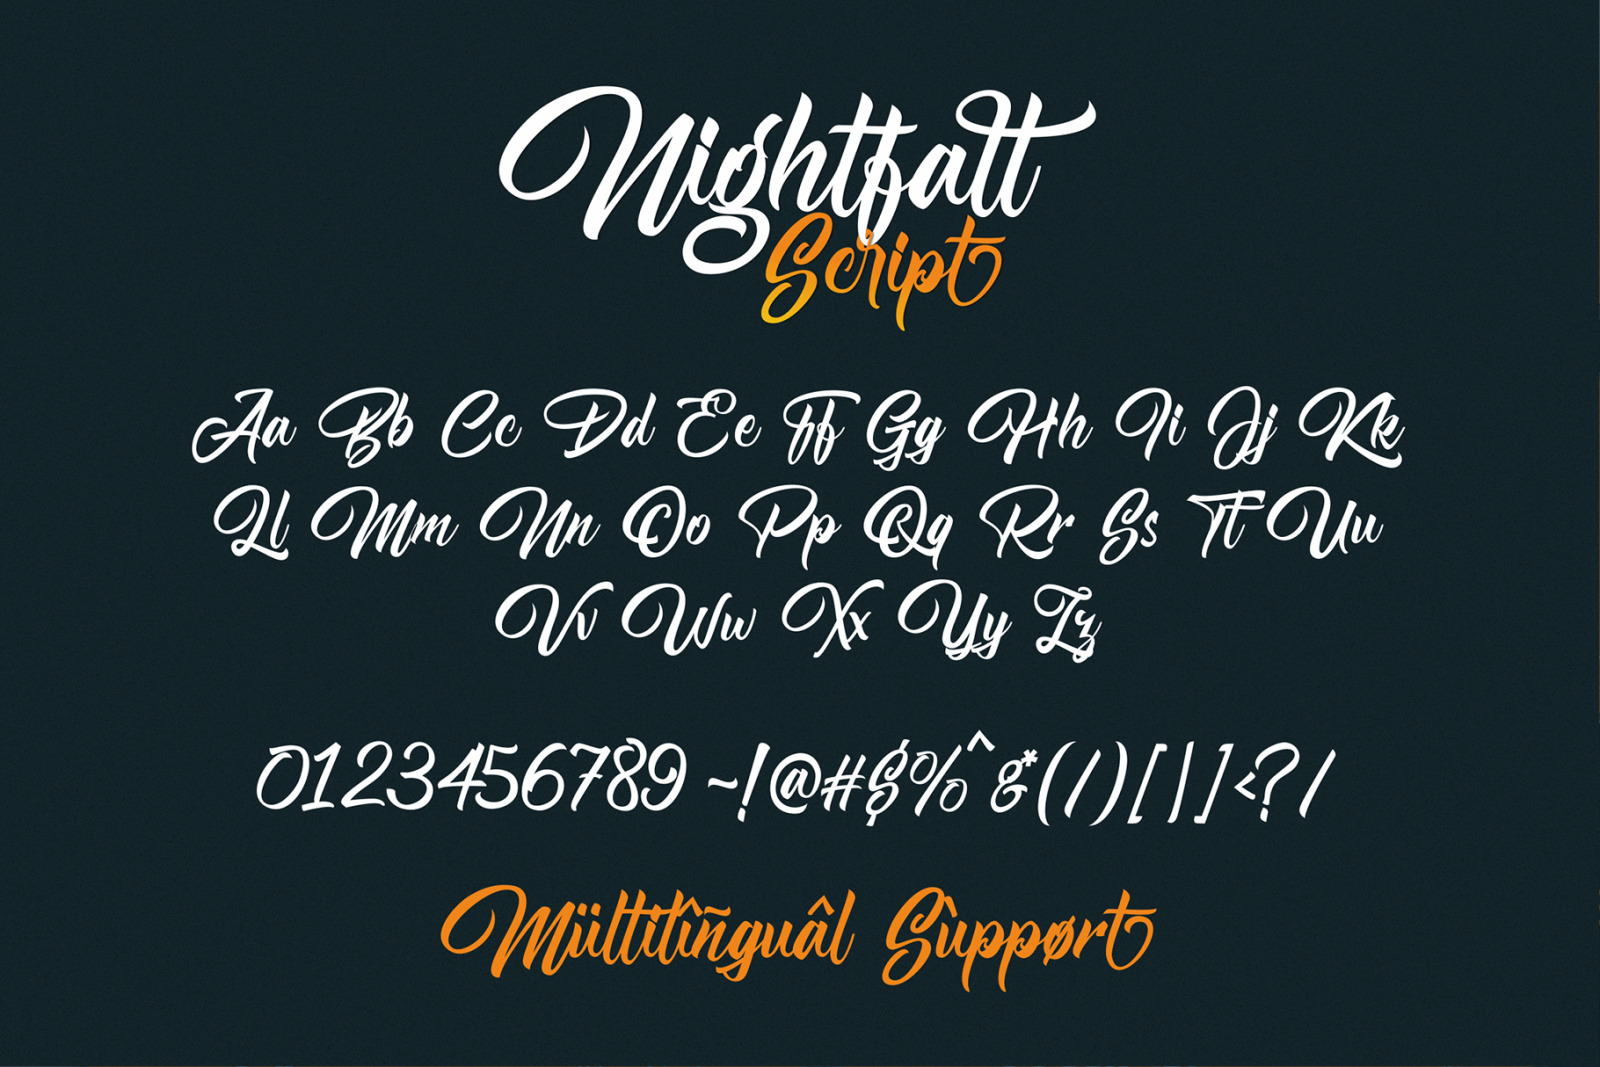 Nightfall
Script
Aa Bb Cc Dd Ee Ff Gg Hh Ii Jj Kk
Ll Mm Nn Oo Pp Qq Rr Ss Tt Uu
Vv Ww Xx Yy Zz
0123456789 ~!@#$%^&*(/)[|]<?/
Mültitîñguâl Sùppørt